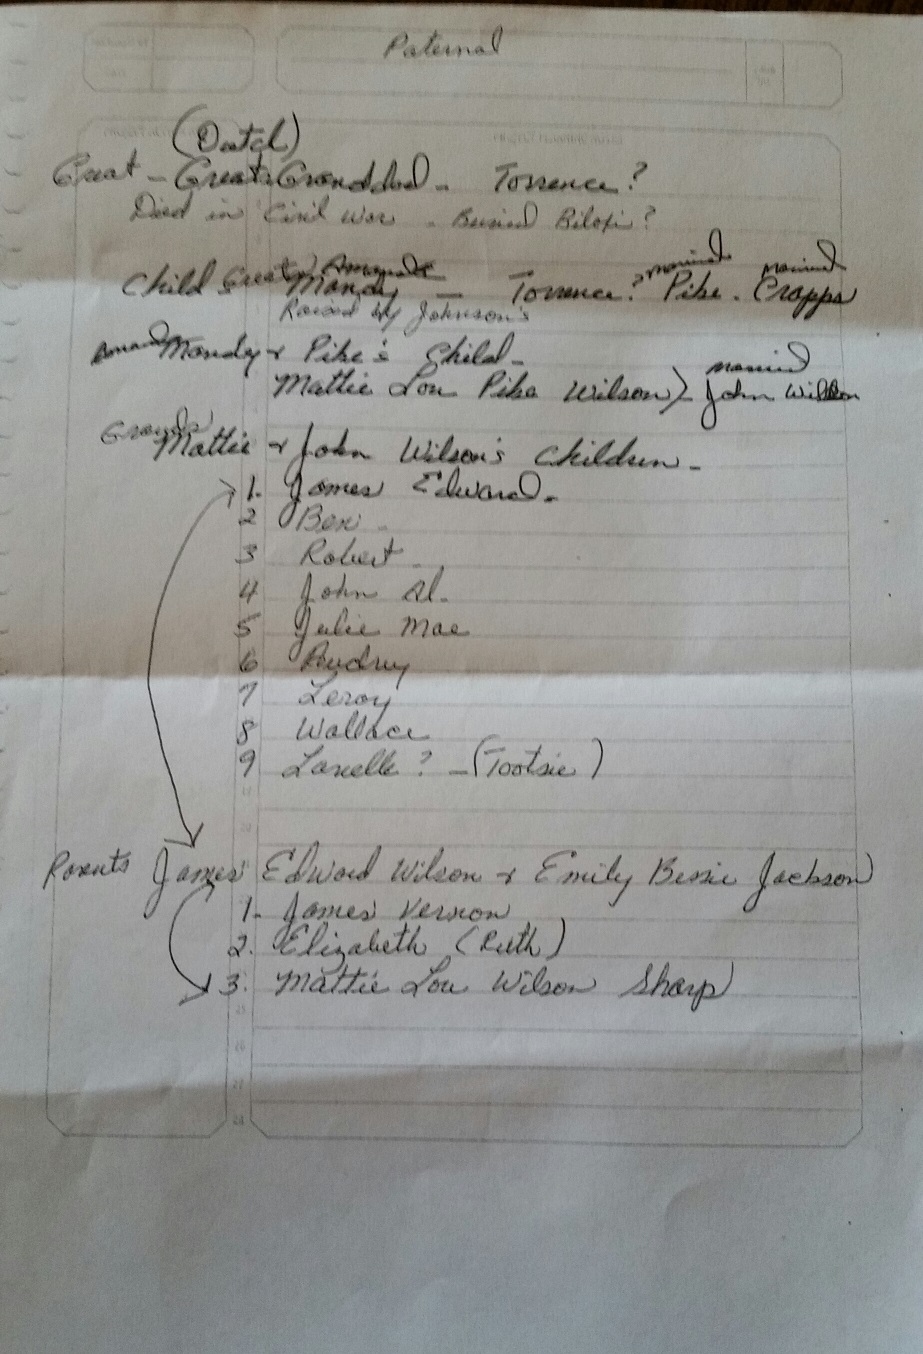 Paternal
(Dutch)
Great - Great Granddad - Torrence?
Died in Civil War - Buried Biloxi?
married married
Child Great) Amanda
Mandy - Torrence? Pike - Crapps
Raised by Johnson's
Mandy + Pike's Child -
married
Mattie Lou Pike Wilson) John Wilson
Grands
Mattie + John Wilson's Children -
1. James Edward -
2 Ben -
3 Robert -
4 John Al.
5 Julie Mae
6 Audrey
7 Leroy
8 Wallace
9 Lanelle? - (Tootsie)
Parents James Edward Wilson + Emily Bessie Jackson
1. James Vernon
2. Elizabeth (Ruth)
3. Mattie Lou Wilson Sharp